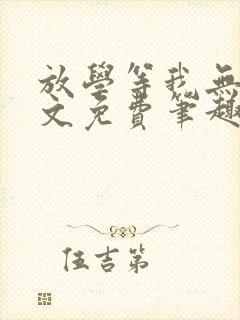 放學等我無
文免費筆趣
伍吉第